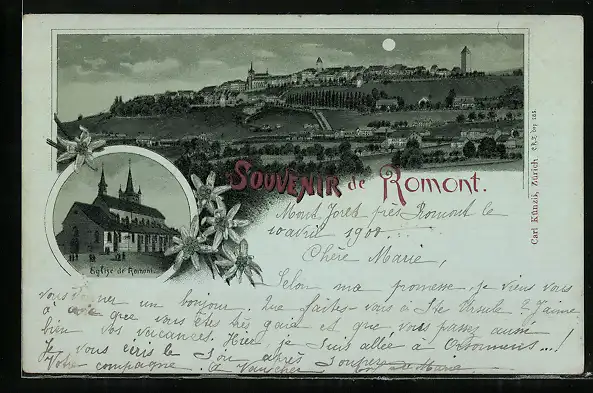 SOUVENIR de Romont.
Eglise de Romont
Carl Künzli, Zürich.
Mont Joret près Romont le
10 avril 1900
Chère Marie,
Selon ma promesse, je viens vous
vous donner un bonjour. Que faites-vous à Ste Ursule? J'aime
à que vous êtes très gaie et que vous passez aussi
bien vos vacances. Hier, je suis allée à
Je vous écris le soir après souper
Votre compagne. Marie